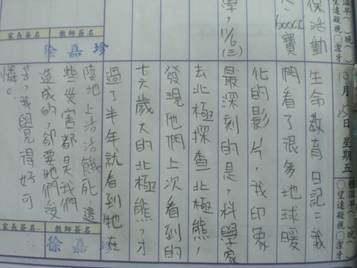 溫習單
望遠凝視
潔牙
10月15日星期五
生命教育日記:我
們看了很多地球暖
化的影片,我印象
最深刻的是,科學家
去北極探查北極熊
發現他們上次看到的
六歲大的北極熊,才
過了半年就看到牠在
陸地上活活餓死,這
些災害都是我們
造成的,卻要牠們受
苦,我覺得好可
憐。
家長簽名
教師簽名
徐嘉珍
保活動
11/6(三)
家長簽名
徐嘉珍